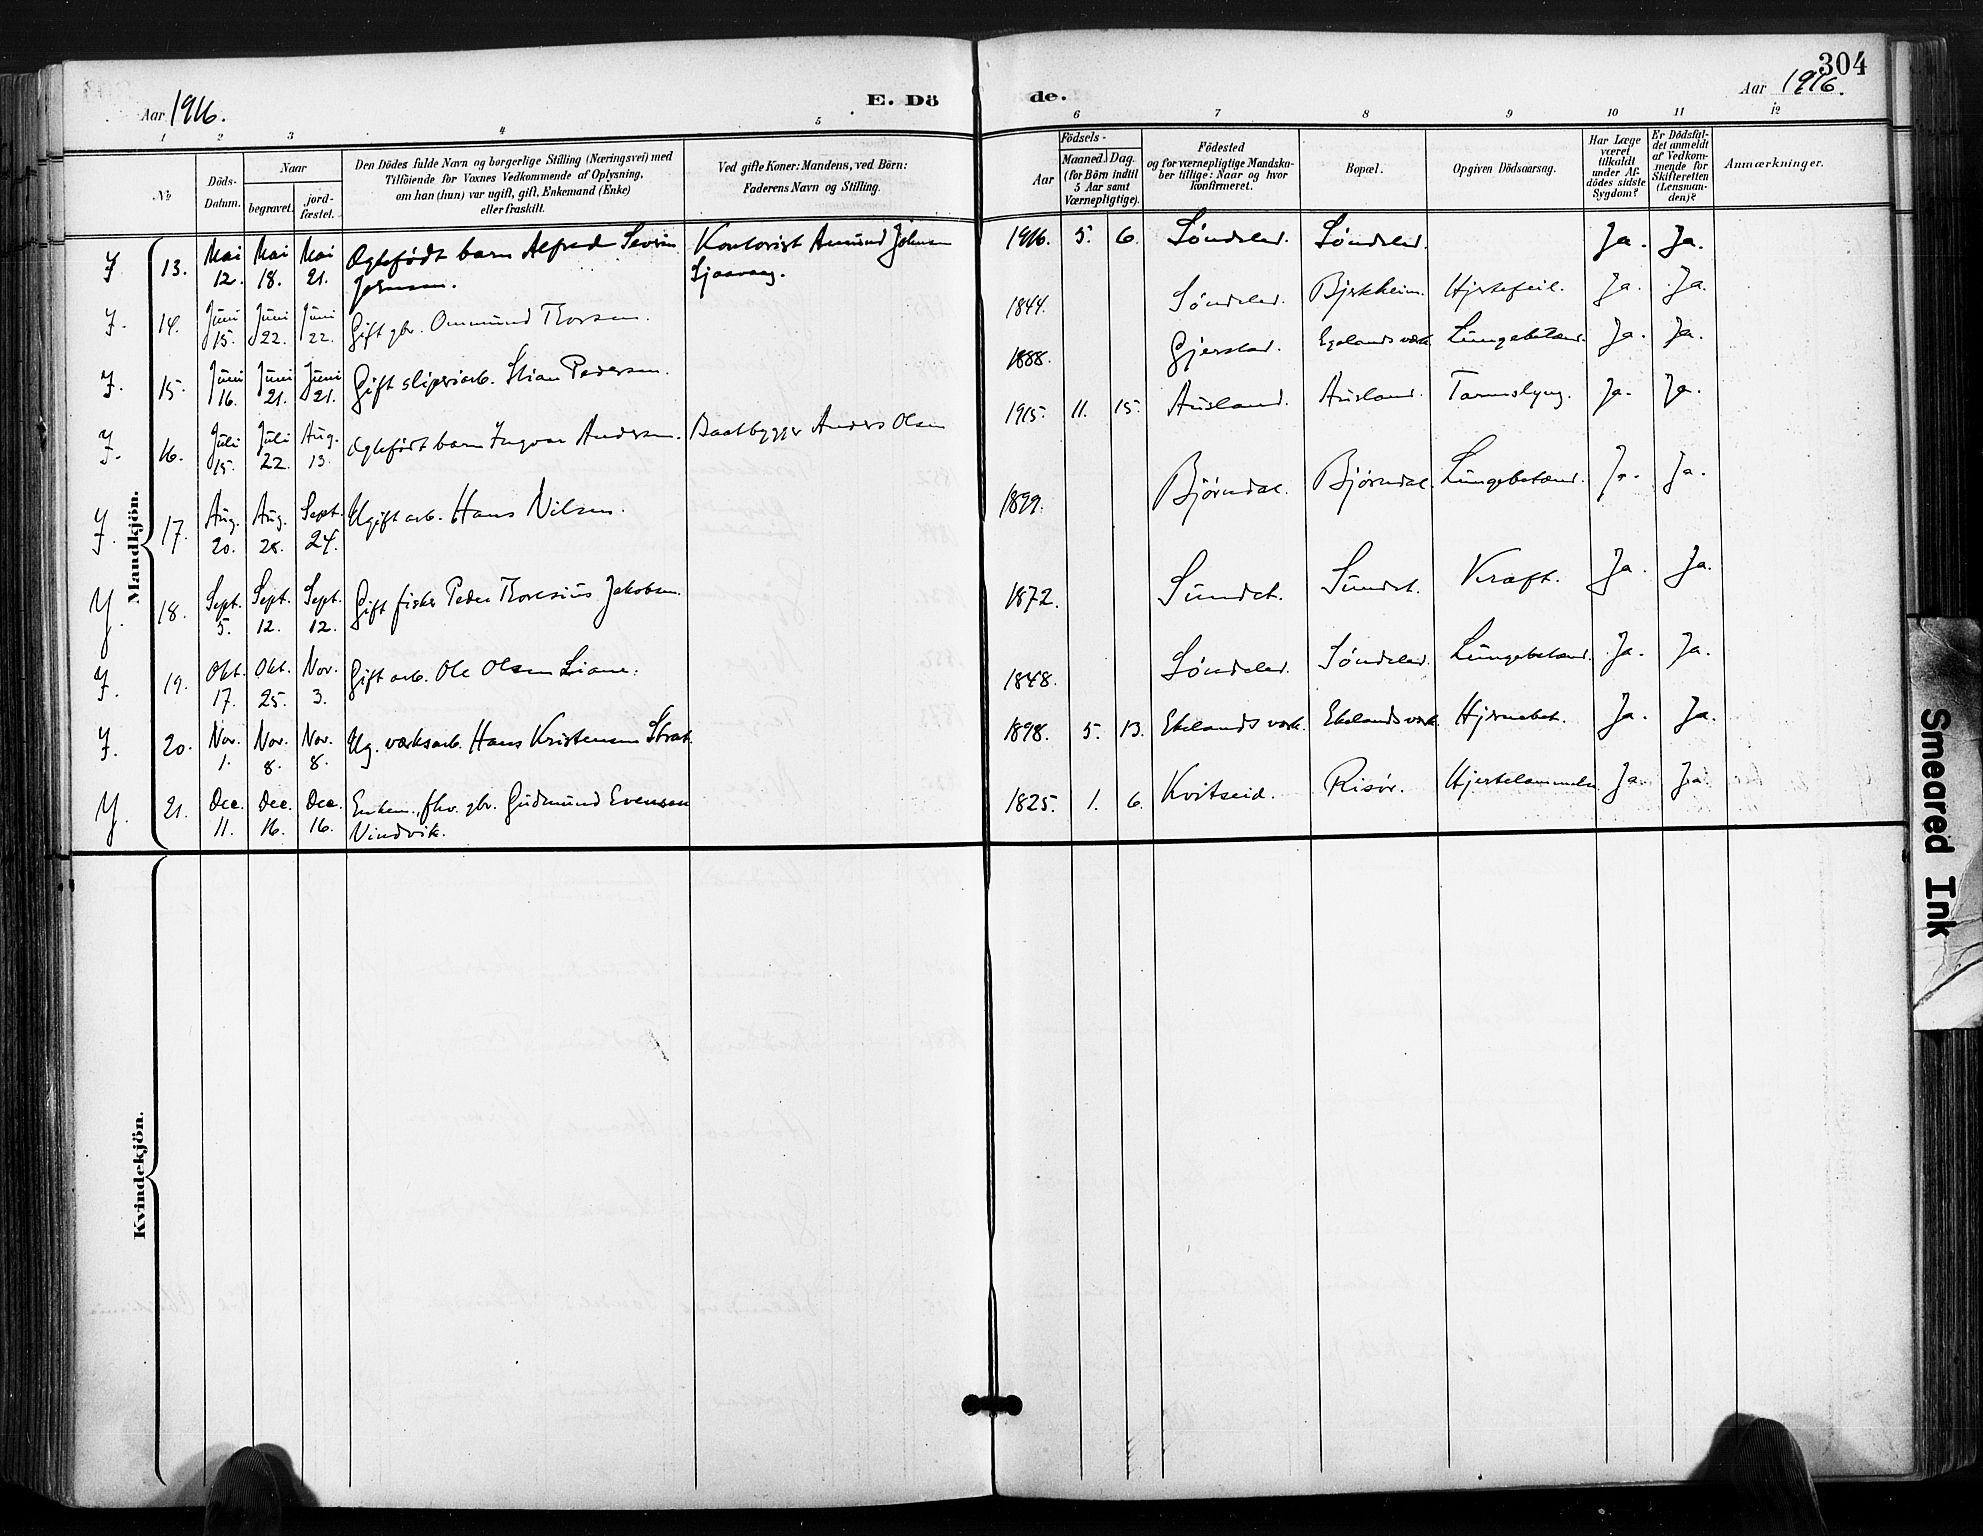 304
Aar 1916.
E. Dö
de.
Aar 1916.
1 2 3 4 5 6 7 8 9 10 11 12
№
Döds-Datum.
Naar
begravet.
jord-fæstet.
Den Dödes fulde Navn og borgerlige Stilling (Næringsvei) med
Tilföiende for Voxnes Vedkommende af Oplysning,
om han (hun) var ugift, gift, Enkemand (Enke)
eller fraskilt.
Ved gifte Koner: Mandens, ved Börn:
Faderens Navn og Stilling.
Födsels-
Aar
Maaned. Dag.
(for Börn indtil
5 Aar samt
Værnepligtige).
Födested
og for værnepligtige Mandska-
ber tillige: Naar og hvor
konfirmeret.
Bopæl.
Opgiven Dödsaarsag.
Har Læge
været
tilkaldt
under Af-
dödes sidste
Sygdom?
Er Dödsfal-
det anmeldt
af Vedkom-
mende for
Skifteretten
(Lensman-
den)?
Anmærkninger.
Mandkjön.
13. Mai 12. Mai 18. Mai 21. Ægtefødt barn Alfred Severin Kontorist Amund Johnsen 1916. 5. 6. Søndeled. Søndeled. Ja. Ja.
Johnsen. Sjaavaag.
14. Juni 15. Juni 22. Juni 22. Gift gbr. Ommund Thorsen. 1844. Søndeled. Bjerkheim. Hjertefeil. Ja. Ja.
15. Juni 16. Juni 21. Juni 21. Gift sliperiarb. Stian Pedersen. 1888. Gjerstad. Egelands værk. Lungebetænd. Ja. Ja.
16. Juli 15. Juli 22. Aug. 13. Ægtefødt barn Ingvar Andersen. Baatbygger Anders Olsen 1915. 11. 15. Ausland. Ausland. Tarmslyng. Ja. Ja.
17. Aug. 20. Aug. 28. Sept. 24. Ugift arb. Hans Nilsen. 1899. Bjørndal. Bjørndal. Lungebetænd. Ja. Ja.
18. Sept. 5. Sept. 12. Sept. 12. Gift fisker Peder Thoresius Jakobsen. 1872. Sundet. Sundet. Kræft. Ja. Ja.
19. Okt. 17. Okt. 25. Nov. 3. Gift arb. Ole Olsen Liane. 1848. Søndeled. Søndeled. Lungebetænd. Ja. Ja.
20. Nov. 1. Nov. 8. Nov. 8. Ug. værksarb. Hans Kristensen Strat. 1898. 5. 13. Ekelands værk. Ekelands værk. Hjernebet. Ja. Ja.
21. Dec. 11. Dec. 16. Dec. 16. Enkem., fhv. gbr. Gudmund Evensen 1825. 1. 6. Kvitseid. Risør. Hjertelammelse Ja. Ja.
Vindvik.
Kvindekjön.
Smeared Ink